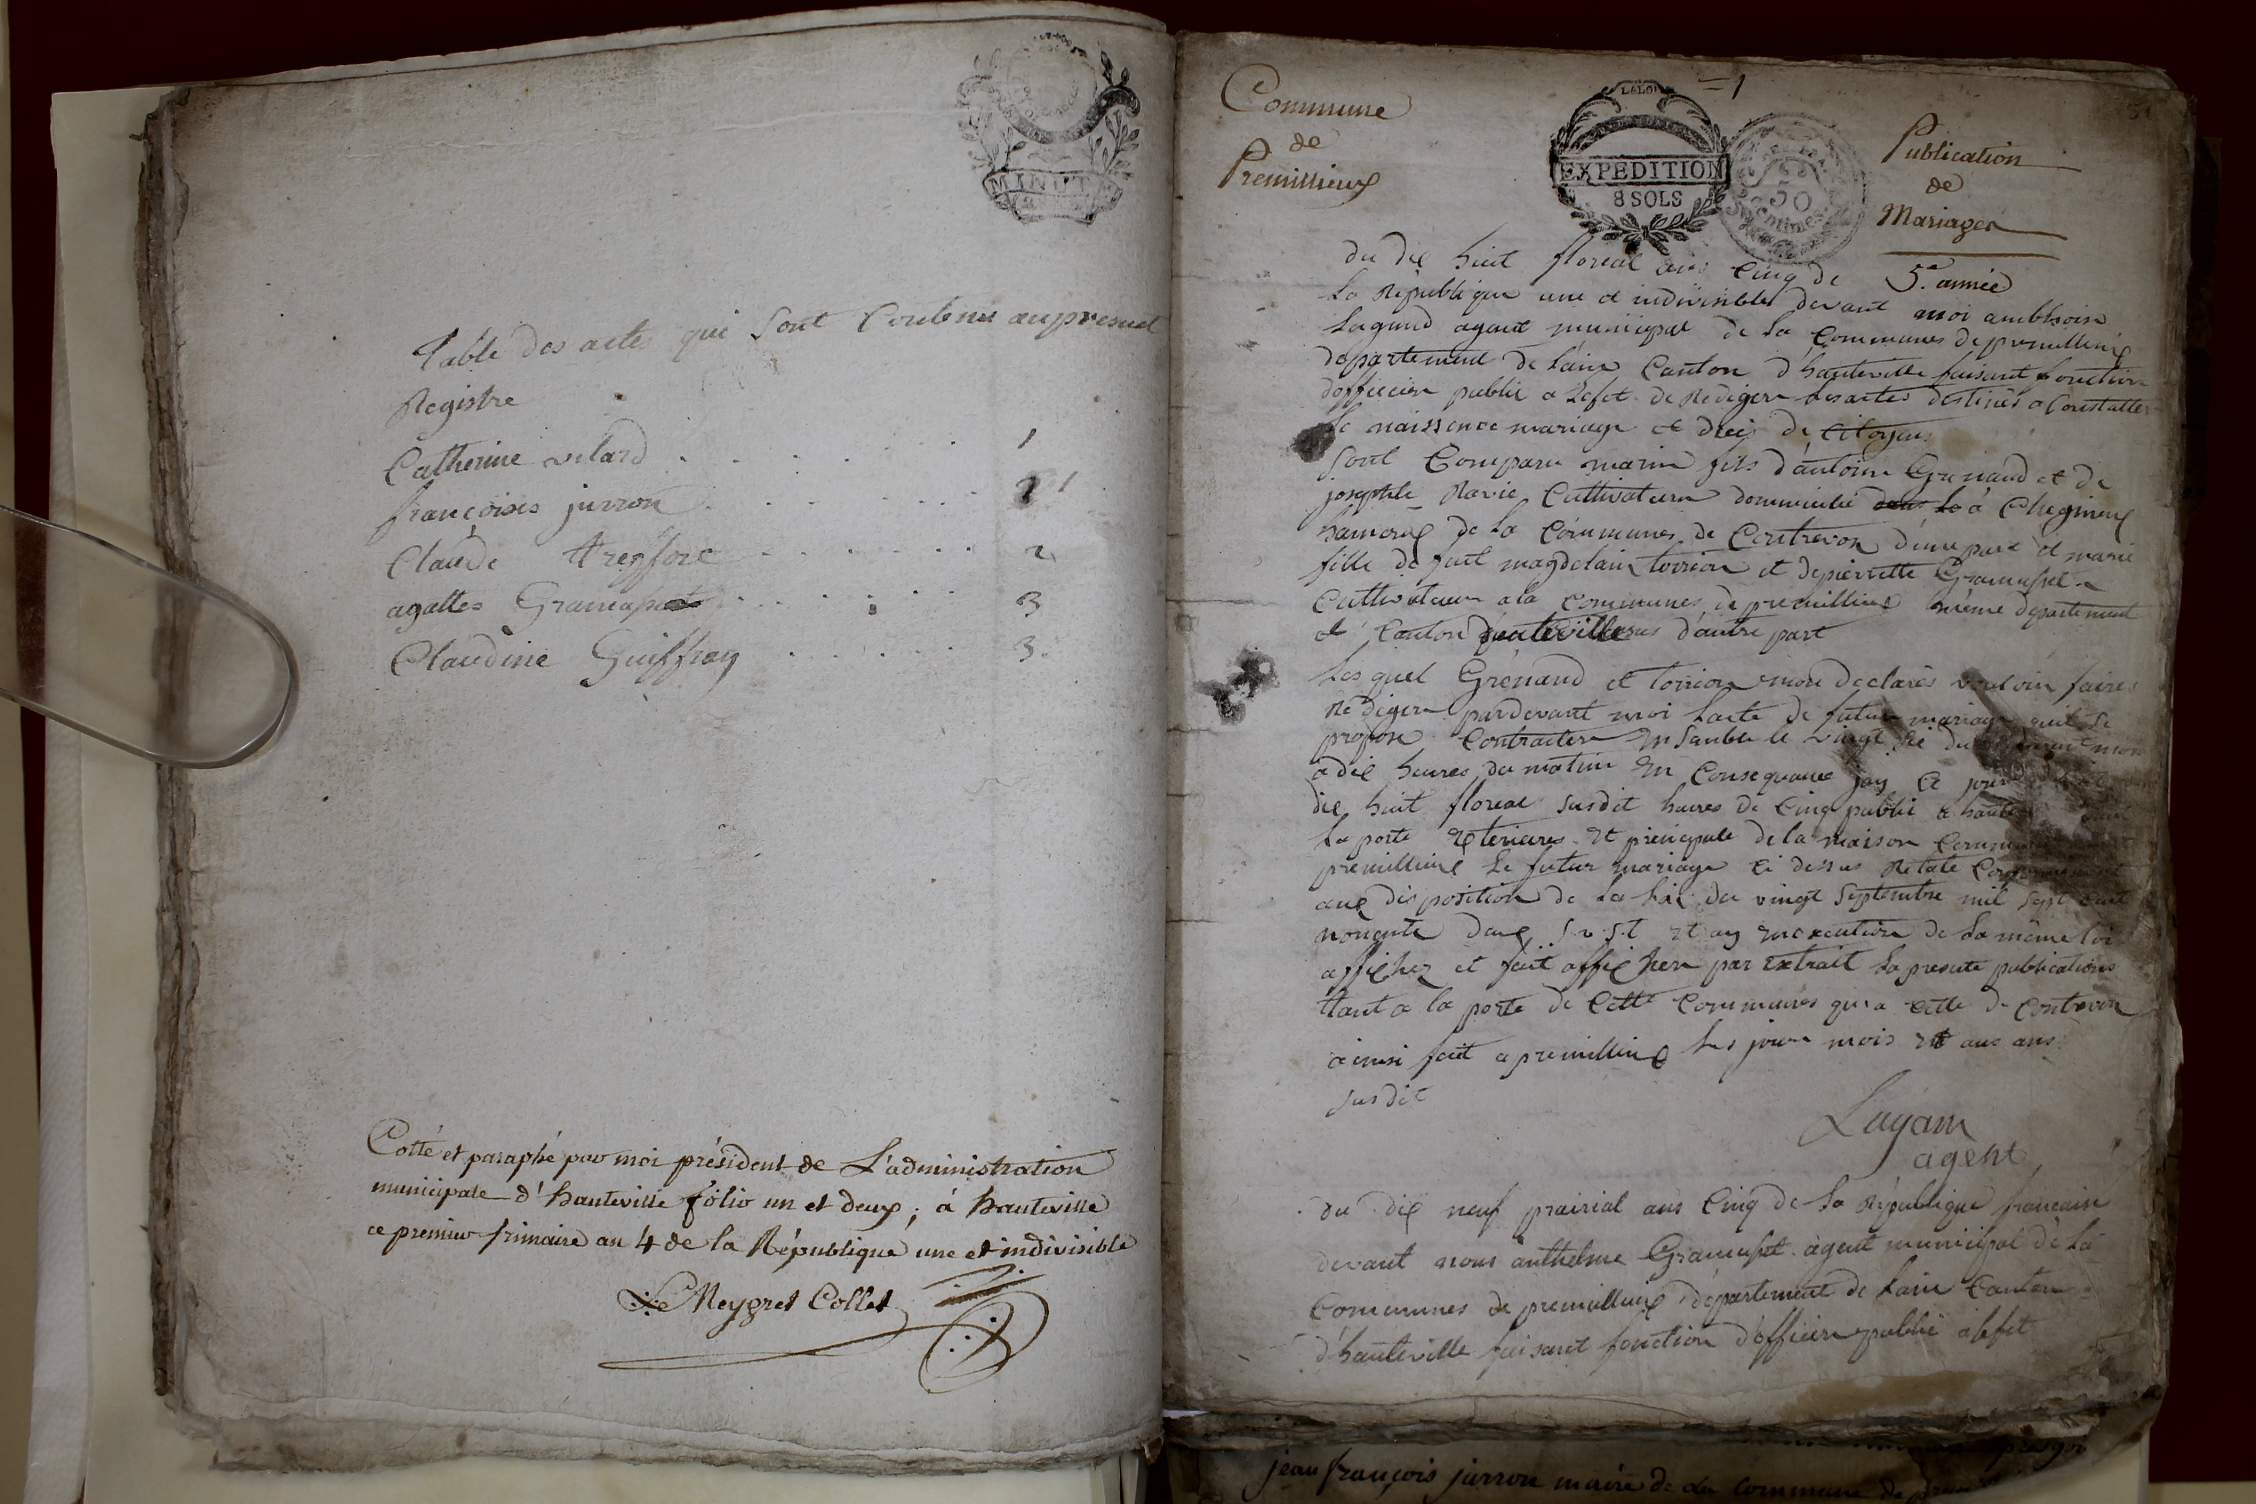 MINUTE
Table des actes qui sont Contenu au present
Registre
Catherine vilard . . . . . . 1
françoises jurron . . . . . . 1
Claude . . . . . . 2
agattes Gramaput . . . . . . 3
Claudine Guiffray . . . . . . 3.
Cotté et paraphé par moi président de L'administration
municipale d'hauteville folio un et deux; à hauteville
ce premier frimaire an 4 de la République une et indivisible
Neygret Collet
=1
Commune
de
Premillieux
LA LOI
EXPEDITION
8 SOLS
50
Centimes
Publication
de
Mariages
5.e année
du dix huit floreal ans Cinq de
la République une et indivisibles devant moi
agent municipal de la Communes de premillieux
departement de lain Canton d'hauteville faisant fonction
dofficier public a lefet de Rediger les actes destinés a Constatter
le naissence mariage et deces de Citoyens
Sont Comparu marin fils d'antoine Grenaud et de
josephte Ravie Cultivateur domicilié à Chegnieux
hameaux de la Communes de Contrevoz d'une part et marie
fille de fait magdelain torrion et de pierrette Gramusset
Cultivateur a la Communes de premillieux même departement
et Canton d'hauteville d'autre part
Les quel Grenaud et torrion mon declarés vouloir faires
Rediger pardevant moi lacte de futur mariage quil se
propose Contracter en sanble le vingt
a dix heures du matin en Consequance jay ce jour
dix huit floreal susdit heures de Cinq publié a haute
la porte exterieures et principale de la maison Commune
premillieux le futur mariage ci dessus Relaté Conformement
aux disposition de la loi du vingt Septembre mil sept cent
nonente deux et ay en execution de la même loi
affichez et fait afficher par Extrait la presente publications
tant a la porte de Cette Communes qu'a celle de Contrevoz
ainsi fait a premillieux les jour mois et ans
susdit
Lagam
agent
du dix neuf prairial ans Cinq de la République francaise
devant nous anthelme Gramusset agent municipal de la
Communes de premillieux departement de lain Canton
d'hauteville faisant fonction d'officier public a lefet
jean françois jurron maire de la Commune de